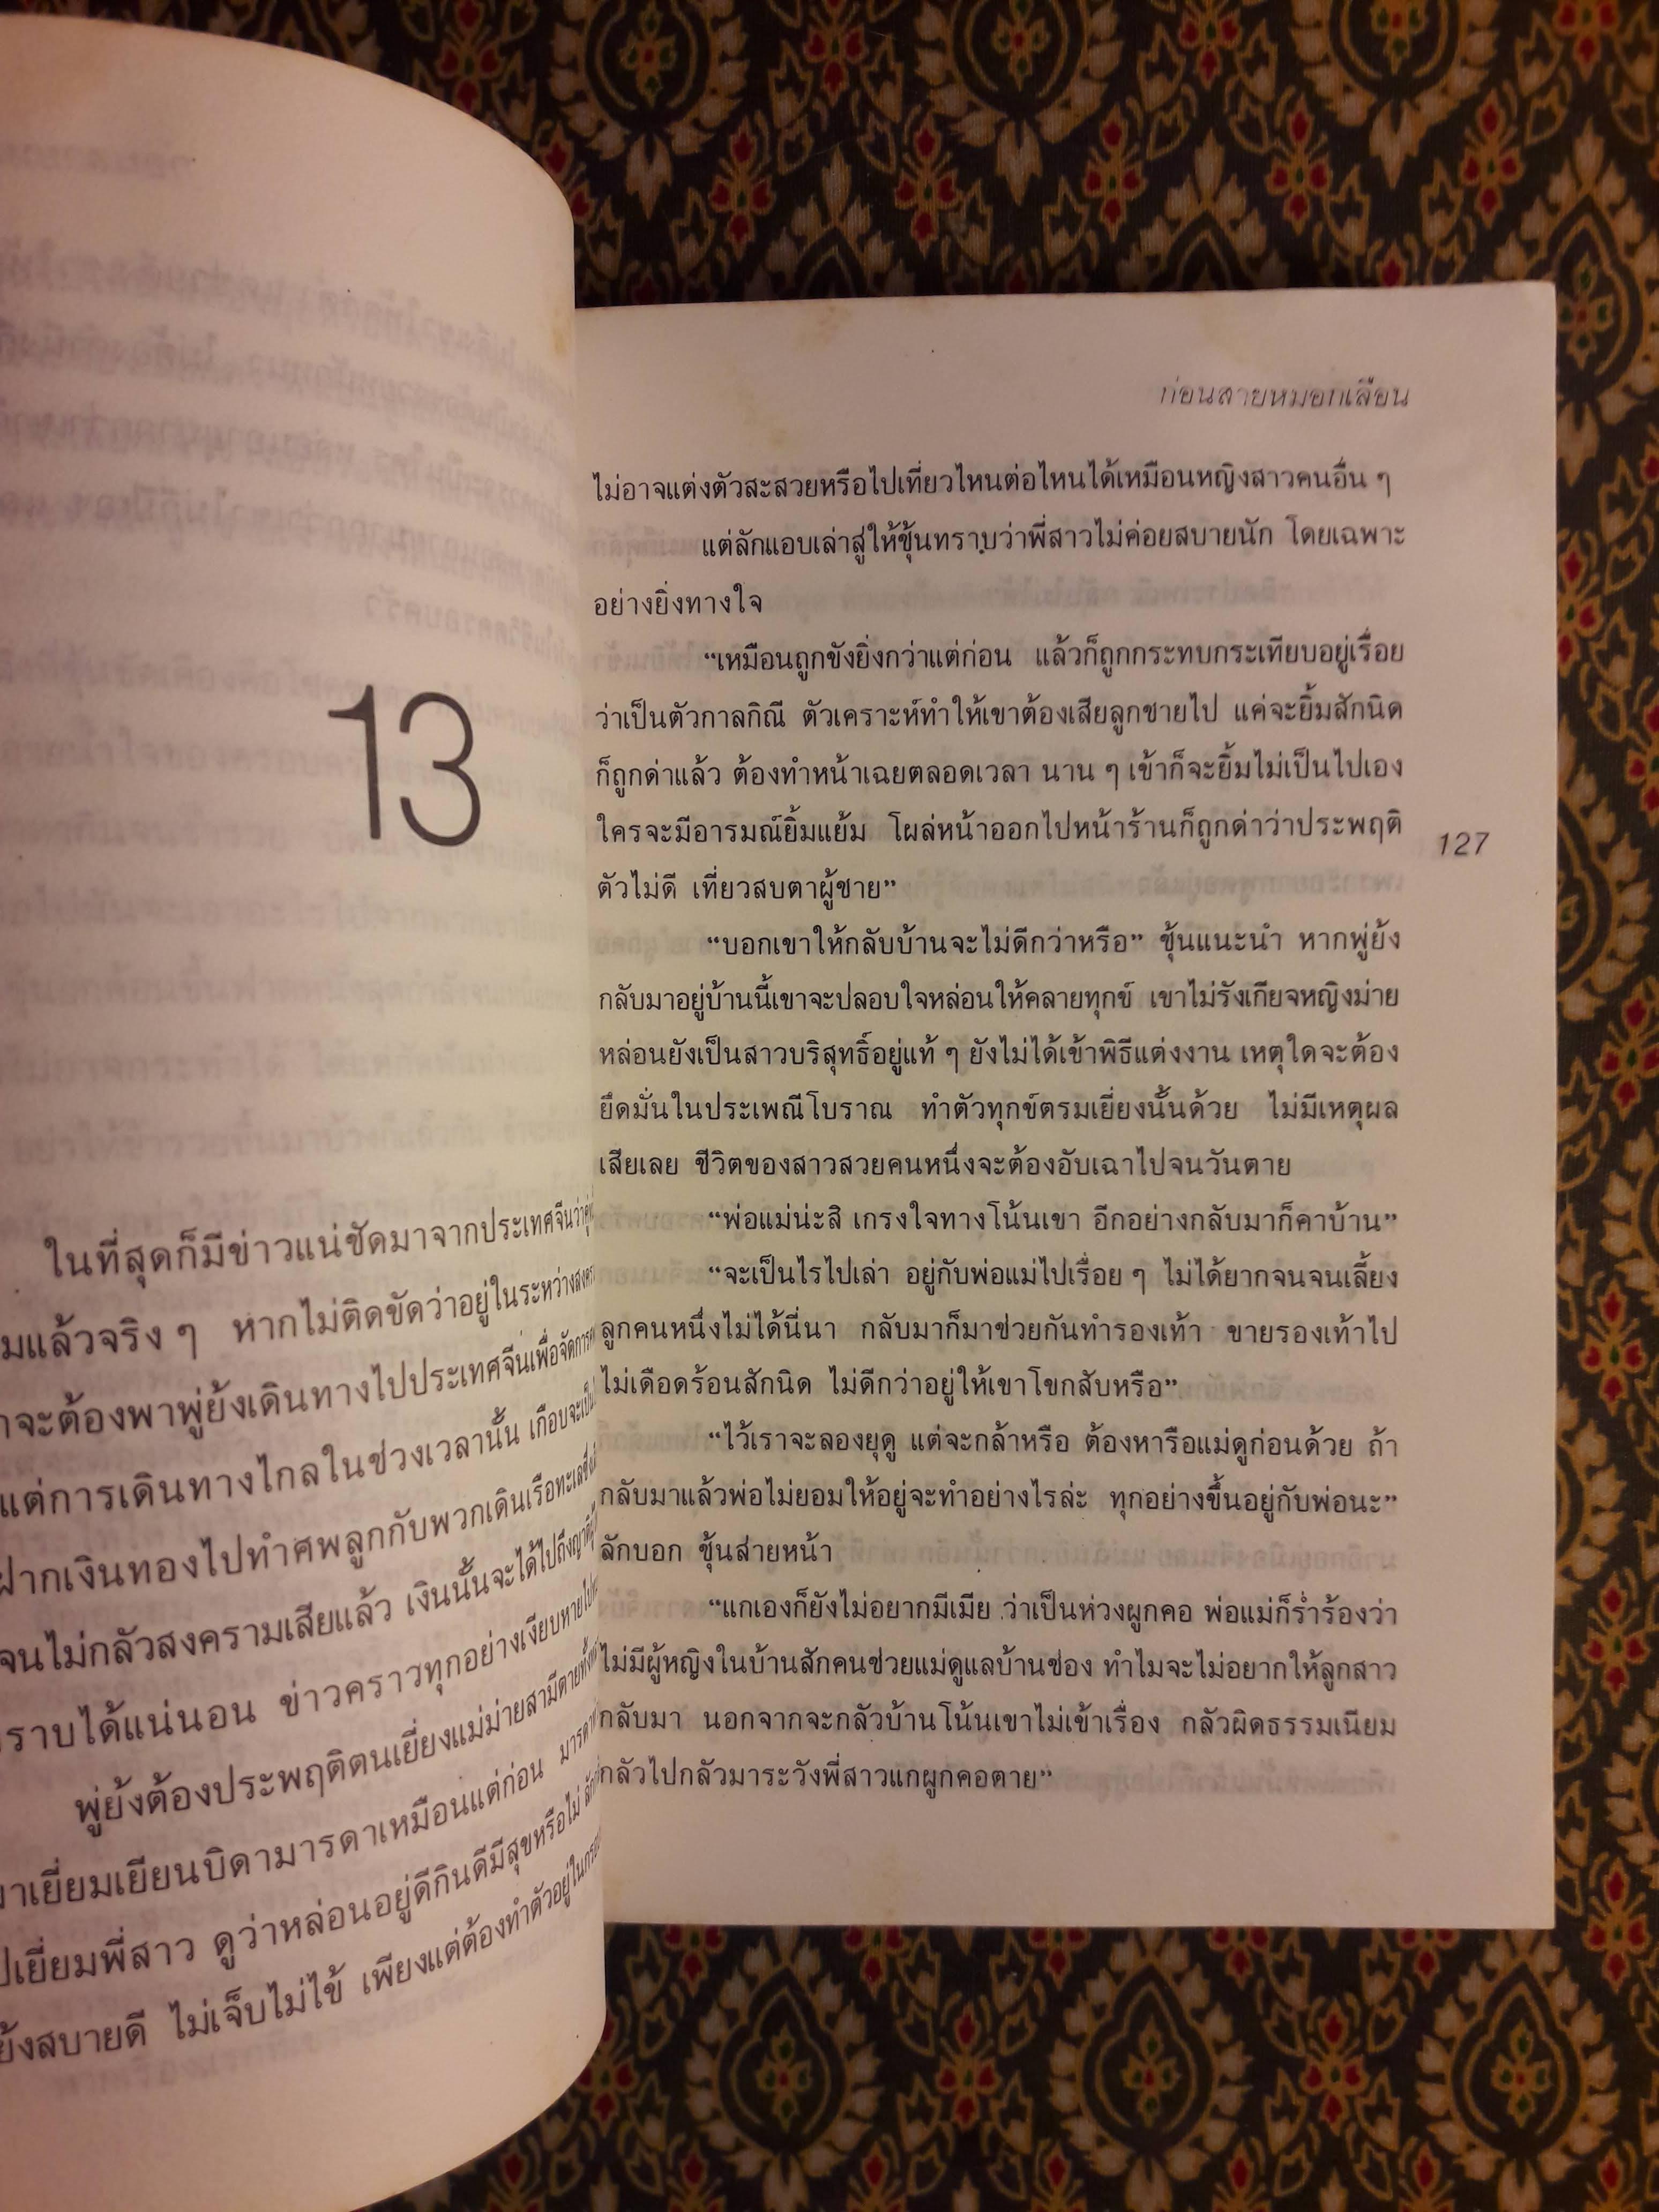 13
ในที่สุดก็มีข่าวแน่ชัดมาจากประเทศจีนว่า
แล้วจริง ๆ หากไม่ติดขัดว่าอยู่ในระหว่าง
จะต้องพาพู่ย้งเดินทางไปประเทศจีนเพื่อจัดการ
แต่การเดินทางไกลในช่วงเวลานั้น เกือบจะเป็น
ฝากเงินทองไปทำศพลูกกับพวกเดินเรือทะเล
จนไม่กลัวสงครามเสียแล้ว เงินนั้นจะได้ไปถึง
ราบได้แน่นอน ข่าวคราวทุกอย่างเงียบหายไป
พู่ย้งต้องประพฤติตนเยี่ยงแม่ม่ายสามีตาย
เยี่ยมเยียนบิดามารดาเหมือนแต่ก่อน
เยี่ยมพี่สาว ดูว่าหล่อนอยู่ดีกินดีมีสุขหรือไม่
ย้งสบายดี ไม่เจ็บไม่ไข้ เพียงแต่ต้องทำตัวอยู่ใน
ก่อนสายหมอกเลือน
ไม่อาจแต่งตัวสะสวยหรือไปเที่ยวไหนต่อไหนได้เหมือนหญิงสาวคนอื่น ๆ
แต่ลักแอบเล่าสู่ให้ซุ้นทราบว่าพี่สาวไม่ค่อยสบายนัก โดยเฉพาะ
อย่างยิ่งทางใจ
“เหมือนถูกขังยิ่งกว่าแต่ก่อน แล้วก็ถูกกระทบกระเทียบอยู่เรื่อย
ว่าเป็นตัวกาลกิณี ตัวเคราะห์ทำให้เขาต้องเสียลูกชายไป แค่จะยิ้มสักนิด
ก็ถูกด่าแล้ว ต้องทำหน้าเฉยตลอดเวลา นาน ๆ เข้าก็จะยิ้มไม่เป็นไปเอง
ใครจะมีอารมณ์ยิ้มแย้ม โผล่หน้าออกไปหน้าร้านก็ถูกด่าว่าประพฤติ
ตัวไม่ดี เที่ยวสบตาผู้ชาย”
127
“บอกเขาให้กลับบ้านจะไม่ดีกว่าหรือ” ซุ้นแนะนำ หากพู่ย้ง
กลับมาอยู่บ้านนี้เขาจะปลอบใจหล่อนให้คลายทุกข์ เขาไม่รังเกียจหญิงม่าย
หล่อนยังเป็นสาวบริสุทธิ์อยู่แท้ ๆ ยังไม่ได้เข้าพิธีแต่งงาน เหตุใดจะต้อง
ยึดมั่นในประเพณีโบราณ ทำตัวทุกข์ตรมเยี่ยงนั้นด้วย ไม่มีเหตุผล
เสียเลย ชีวิตของสาวสวยคนหนึ่งจะต้องอับเฉาไปจนวันตาย
“พ่อแม่น่ะสิ เกรงใจทางโน้นเขา อีกอย่างกลับมาก็คาบ้าน”
“จะเป็นไรไปเล่า อยู่กับพ่อแม่ไปเรื่อย ๆ ไม่ได้ยากจนจนเลี้ยง
ลูกคนหนึ่งไม่ได้นี่นา กลับมาก็มาช่วยกันทำรองเท้า ขายรองเท้าไป
ไม่เดือดร้อนสักนิด ไม่ดีกว่าอยู่ให้เขาโขกสับหรือ”
“ไว้เราจะลองยุดู แต่จะกล้าหรือ ต้องหารือแม่ดูก่อนด้วย ถ้า
กลับมาแล้วพ่อไม่ยอมให้อยู่จะทำอย่างไรล่ะ ทุกอย่างขึ้นอยู่กับพ่อนะ”
ลักบอก ซุ้นส่ายหน้า
“แกเองก็ยังไม่อยากมีเมีย ว่าเป็นห่วงผูกคอ พ่อแม่ก็ร่ำร้องว่า
ไม่มีผู้หญิงในบ้านสักคนช่วยแม่ดูแลบ้านช่อง ทำไมจะไม่อยากให้ลูกสาว
กลับมา นอกจากจะกลัวบ้านโน้นเขาไม่เข้าเรื่อง กลัวผิดธรรมเนียม
กลัวไปกลัวมาระวังพี่สาวแกผูกคอตาย”